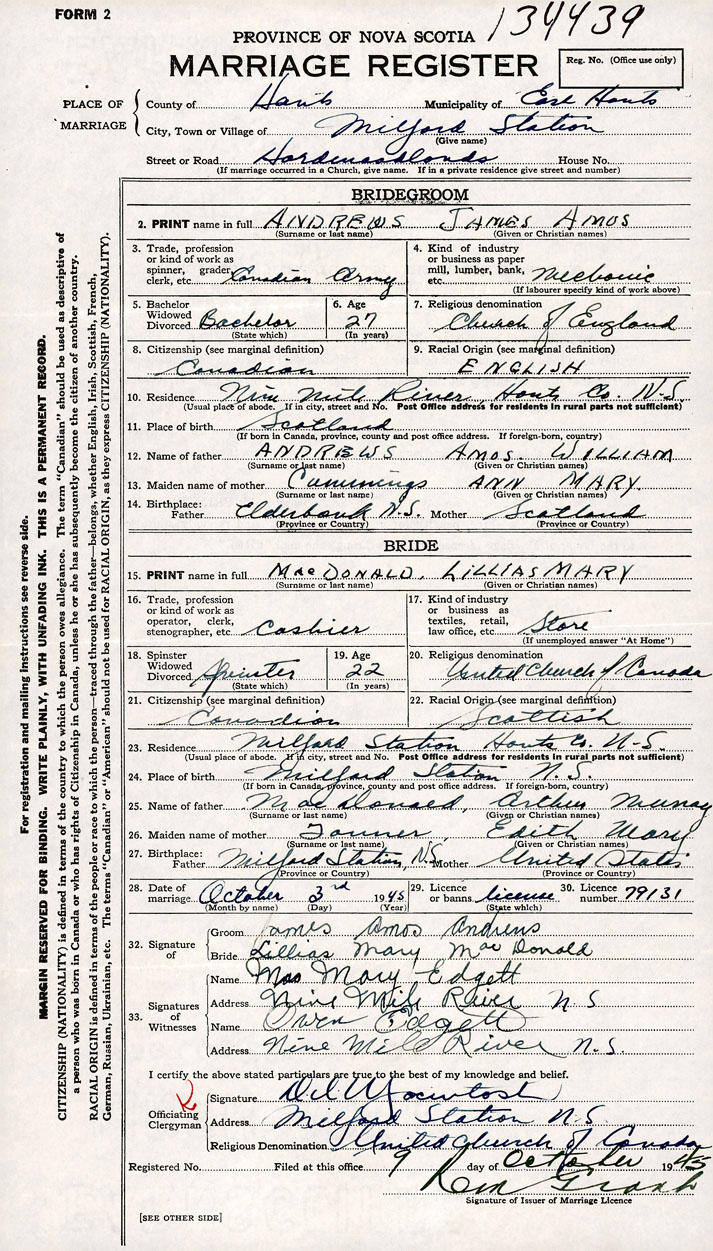 FORM 2
134439
PROVINCE OF NOVA SCOTIA
MARRIAGE REGISTER
Reg. No. (Office use only)
PLACE OF MARRIAGE
County of Hants Municipality of East Hants
City, Town or Village of Milford Station
(Give name)
Street or Road House No.
(If marriage occurred in a Church, give name. If in a private residence give street and number)
BRIDEGROOM
2. PRINT name in full ANDREWS JAMES AMOS
(Surname or last name) (Given or Christian names)
3. Trade, profession or kind of work as spinner, grader, clerk, etc. Canadian Army
4. Kind of industry or business as paper mill, lumber, bank, etc. Mechanic
(If labourer specify kind of work above)
5. Bachelor Widowed Divorced Bachelor
(State which)
6. Age 27
(In years)
7. Religious denomination
Church of England
8. Citizenship (see marginal definition)
Canadian
9. Racial Origin (see marginal definition)
ENGLISH
10. Residence Nine Mile River, Hants Co. N.S.
(Usual place of abode. If in city, street and No. Post Office address for residents in rural parts not sufficient)
11. Place of birth Scotland
(If born in Canada, province, county and post office address. If foreign-born, country)
12. Name of father ANDREWS AMOS. WILLIAM
(Surname or last name) (Given or Christian names)
13. Maiden name of mother Cummings ANN MARY.
(Surname or last name) (Given or Christian names)
14. Birthplace: Father Elderbank N.S. Mother Scotland
(Province or Country) (Province or Country)
BRIDE
15. PRINT name in full MacDONALD, LILLIAS MARY
(Surname or last name) (Given or Christian names)
16. Trade, profession or kind of work as operator, clerk, stenographer, etc. Cashier
17. Kind of industry or business as textiles, retail, law office, etc. Store
(If unemployed answer "At Home")
18. Spinster Widowed Divorced Spinster
(State which)
19. Age 22
(In years)
20. Religious denomination
United Church of Canada
21. Citizenship (see marginal definition)
Canadian
22. Racial Origin (see marginal definition)
Scottish
23. Residence Milford Station Hants Co. N-S.
(Usual place of abode. If in city, street and No. Post Office address for residents in rural parts not sufficient)
24. Place of birth Milford Station N.S.
(If born in Canada, province, county and post office address. If foreign-born, country)
25. Name of father MacDonald, Arthur Murray
(Surname or last name) (Given or Christian names)
26. Maiden name of mother Edith Mary
(Surname or last name) (Given or Christian names)
27. Birthplace: Father Milford Station, N.S. Mother United States
(Province or Country) (Province or Country)
28. Date of marriage October 3rd 1945
(Month by name) (Day) (Year)
29. Licence or banns. license
(State which)
30. Licence number 79131
32. Signature of
Groom James Amos Andrews
Bride Lillias Mary MacDonald
33. Signatures of Witnesses
Name Mary Edgett
Address Nine Mile River N S
Name Owen Edgett
Address Nine Mile River N.S.
I certify the above stated particulars are true to the best of my knowledge and belief.
Officiating Clergyman
Signature
Address Milford Station N.S.
Religious Denomination United Church of Canada
Registered No. Filed at this office 9 day of October 1945
Signature of Issuer of Marriage Licence
[SEE OTHER SIDE]
For registration and mailing instructions see reverse side.
MARGIN RESERVED FOR BINDING. WRITE PLAINLY, WITH UNFADING INK. THIS IS A PERMANENT RECORD.
CITIZENSHIP (NATIONALITY) is defined in terms of the country to which the person owes allegiance. The term "Canadian" should be used as descriptive of
a person who was born in Canada or who has rights of Citizenship in Canada, unless he or she has subsequently become the citizen of another country.
RACIAL ORIGIN is defined in terms of the people or race to which the person—traced through the father—belongs, whether English, Irish, Scottish, French,
German, Russian, Ukrainian, etc. The terms "Canadian" or "American" should not be used for RACIAL ORIGIN, as they express CITIZENSHIP (NATIONALITY).